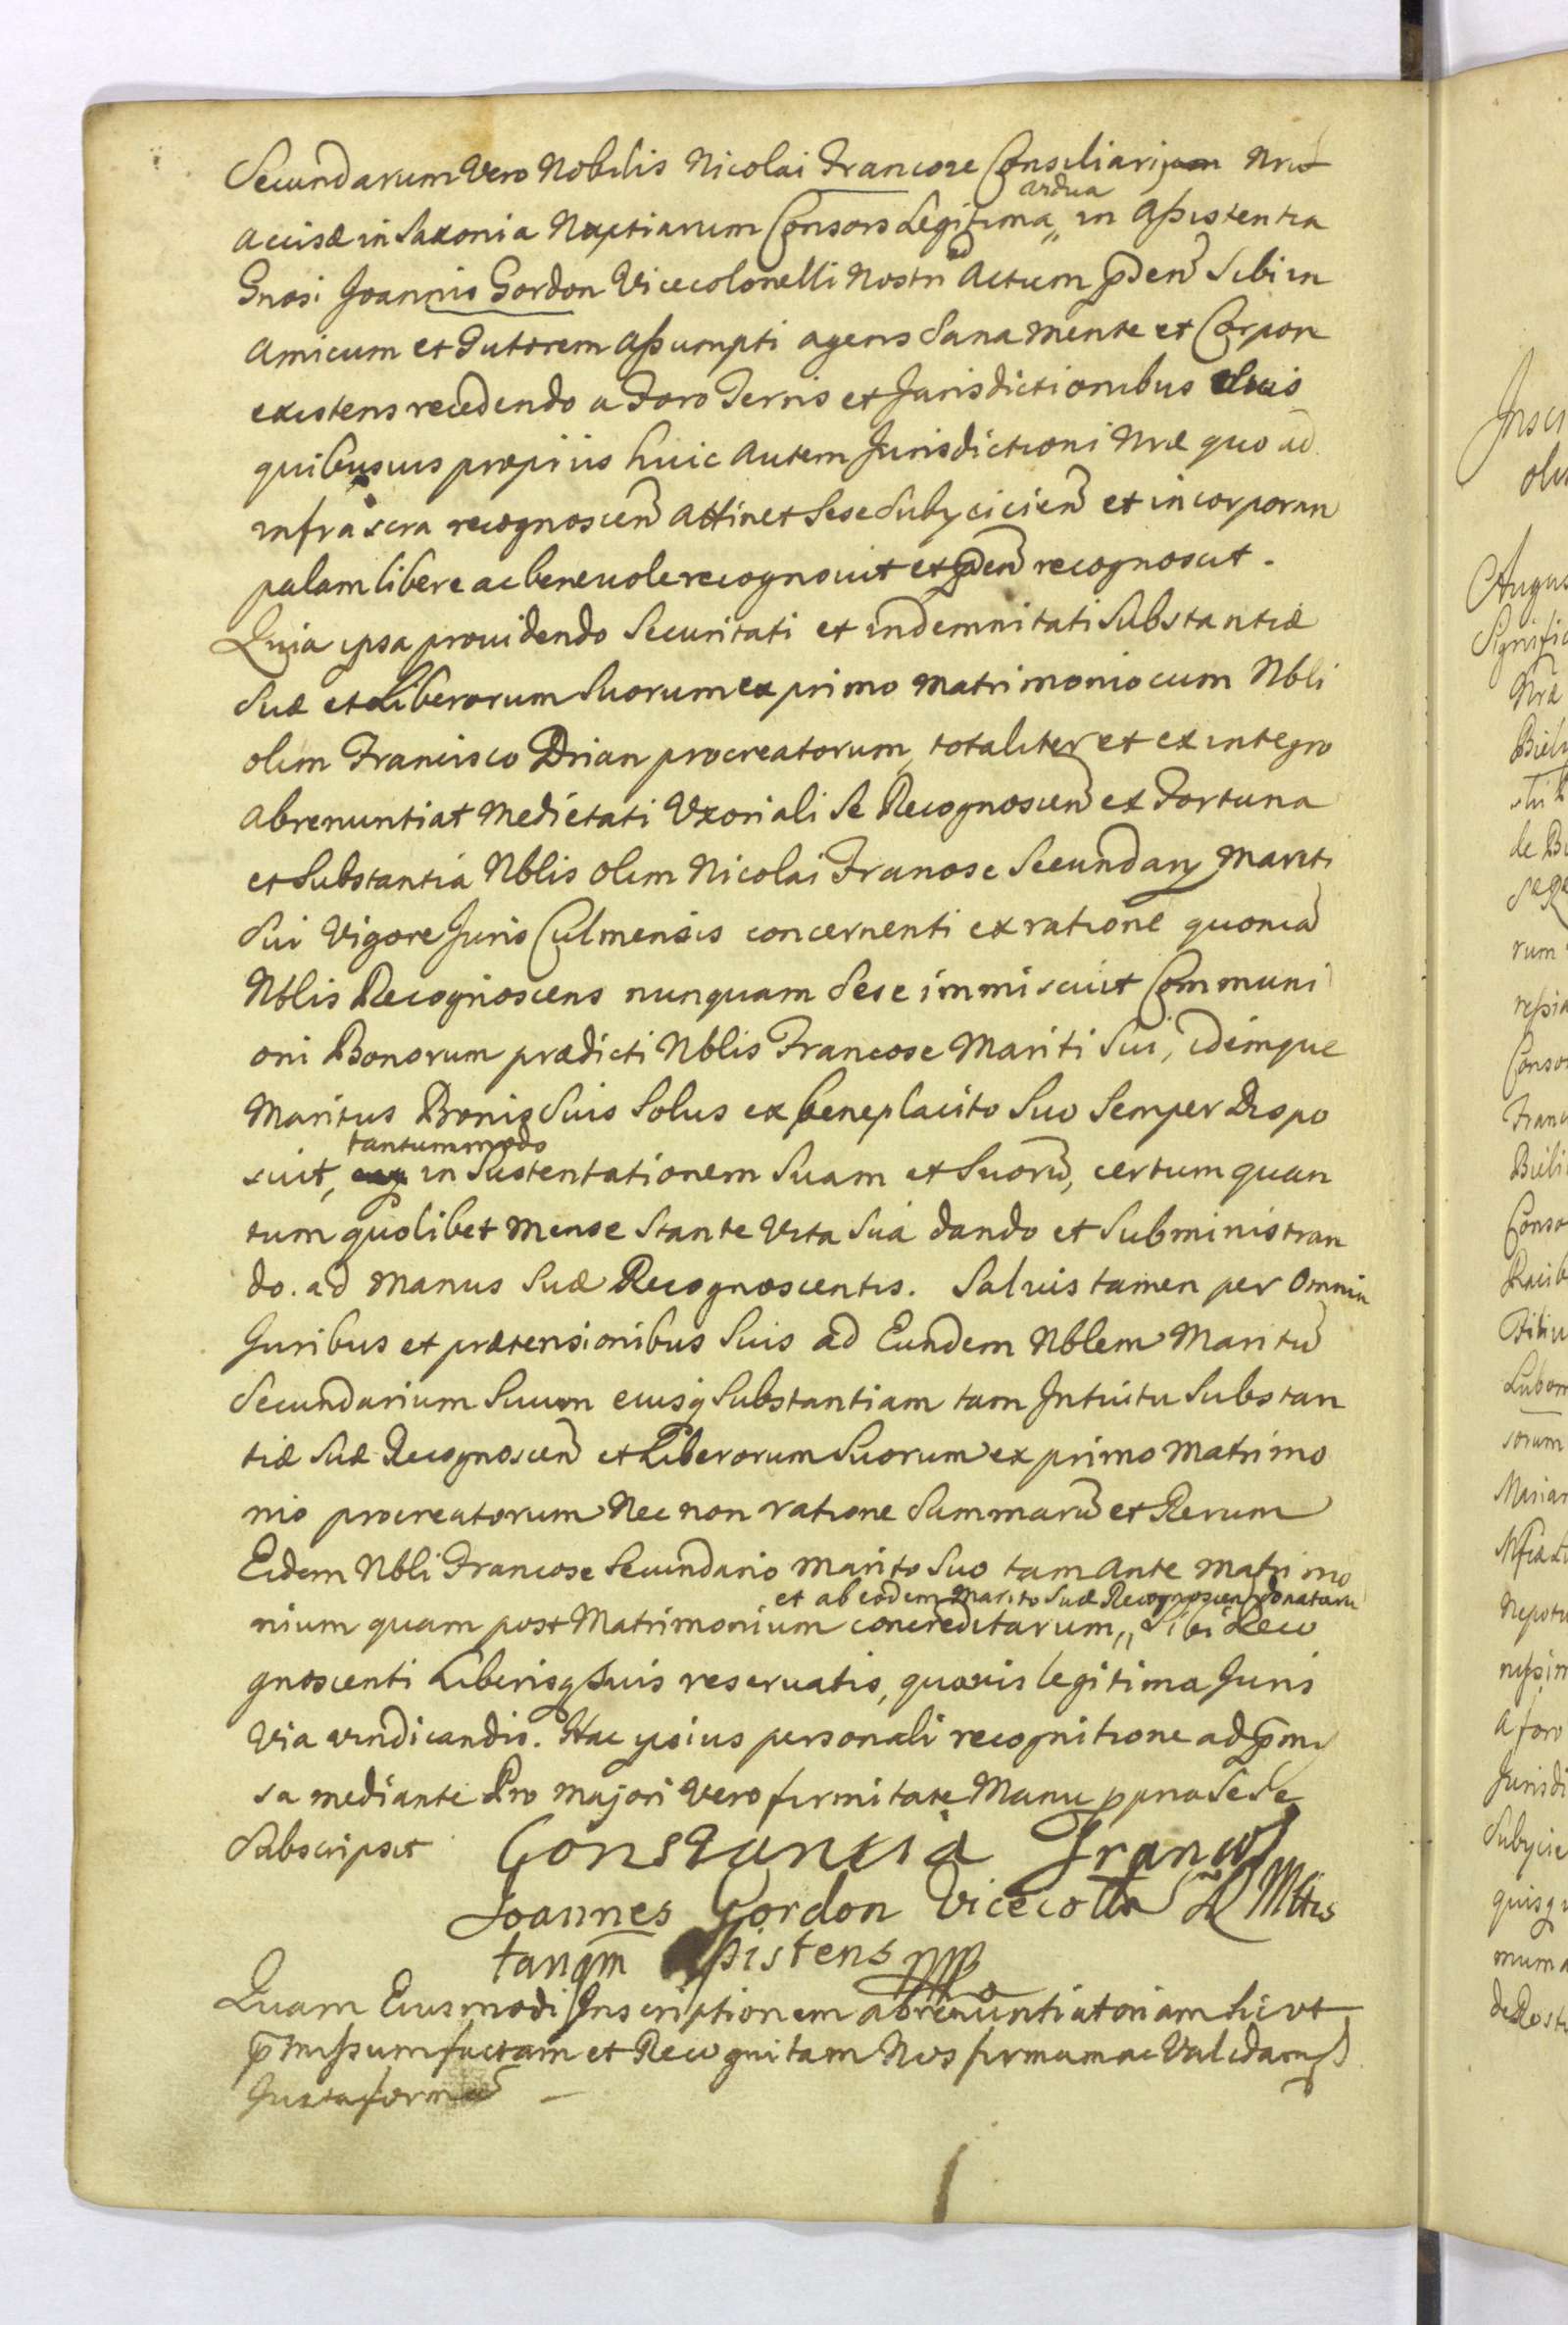 Secundarum Vero Nobilis Nicolai Francose Consiliarij Nri
accisæ in Saxonia Nuptiarum Consors Legitima,, in assistentia
vidua
Gnosi Joannis Gordon Vicecolonelli Nostri ad Actum pñdenꝰ Sibi in
Amicum et Tutorem assumpti agens Sana mente et Corpore
existens recedendo a Foro Terris et Jurisdictionibus Suis
quibusuis proprijs huic autem Jurisdictioni Nræ quo ad
infra scra recognoscenꝰ attinet Sese Subyciciendꝰ et incorporan
palam libere ac beneuole recognouit et pñdenꝰ recognoscit.
Quia ipsa prouidendo Securitati et indemnitati Substantiæ
Suæ et Liberorum Suorum ex primo matrimonio cum Nbli
olim Francisco Drian procreatorum, totaliter et ex integro
abrenuntiat Medietati Uxoriali Se Recognoscenꝰ ex Fortuna
et Substantia Nblis olim Nicolai Francose Secundarij Mariti
Sui Vigore Juris Culmensis concernenti ex ratione quoniã
Nblis Recognoscens nunquam Sese immiscuit Communi
oni Bonorum prædicti Nblis Francose Mariti Sui, idemque
Maritus Bonis Suis Solus ex beneplacito Suo Semper Dispo
suit, tantummodo in Sustentationem Suam et Suorũ, certum quan
tum quolibet Mense Stante Vita Sua dando et Subministran
do. ad manus Suæ Recognoscentis. Saluis tamen per Omnia
Juribus et prætensionibus Suis ad Eundem Nblem Maritũ
Secundarium Suum eiusq Substantiam tam Intuitu Substan
tiæ Suæ Recognoscenꝰ et Liberorum Suorum ex primo Matrimo
nio procreatorum Nec non ratione Summarũ et Rerum
Eidem Nbli Francose Secundario marito Suo tam ante matrimo
et ab eodem Marito Suæ Recognoscen donatarũ
nium quam post Matrimonium concreditarum,, Sibi Reco
gnoscenti Liberisq Suis reseruatis, quauis legitima Juris
Via vindicandis. Hac ipsius personali recognitione ad pmis
sa mediante Pro majori Vero firmitate Manu ppria Sese
Subscripsit Constancia Francos
Joannes Gordon Vicecolla S R Mttis
tanqm assistens mp
Quam Eiusmodi Inscriptionem abrenuntiatoriam sic ut
pmissum factam et Recognitam Nos firmam ac Validam
Juxta formã